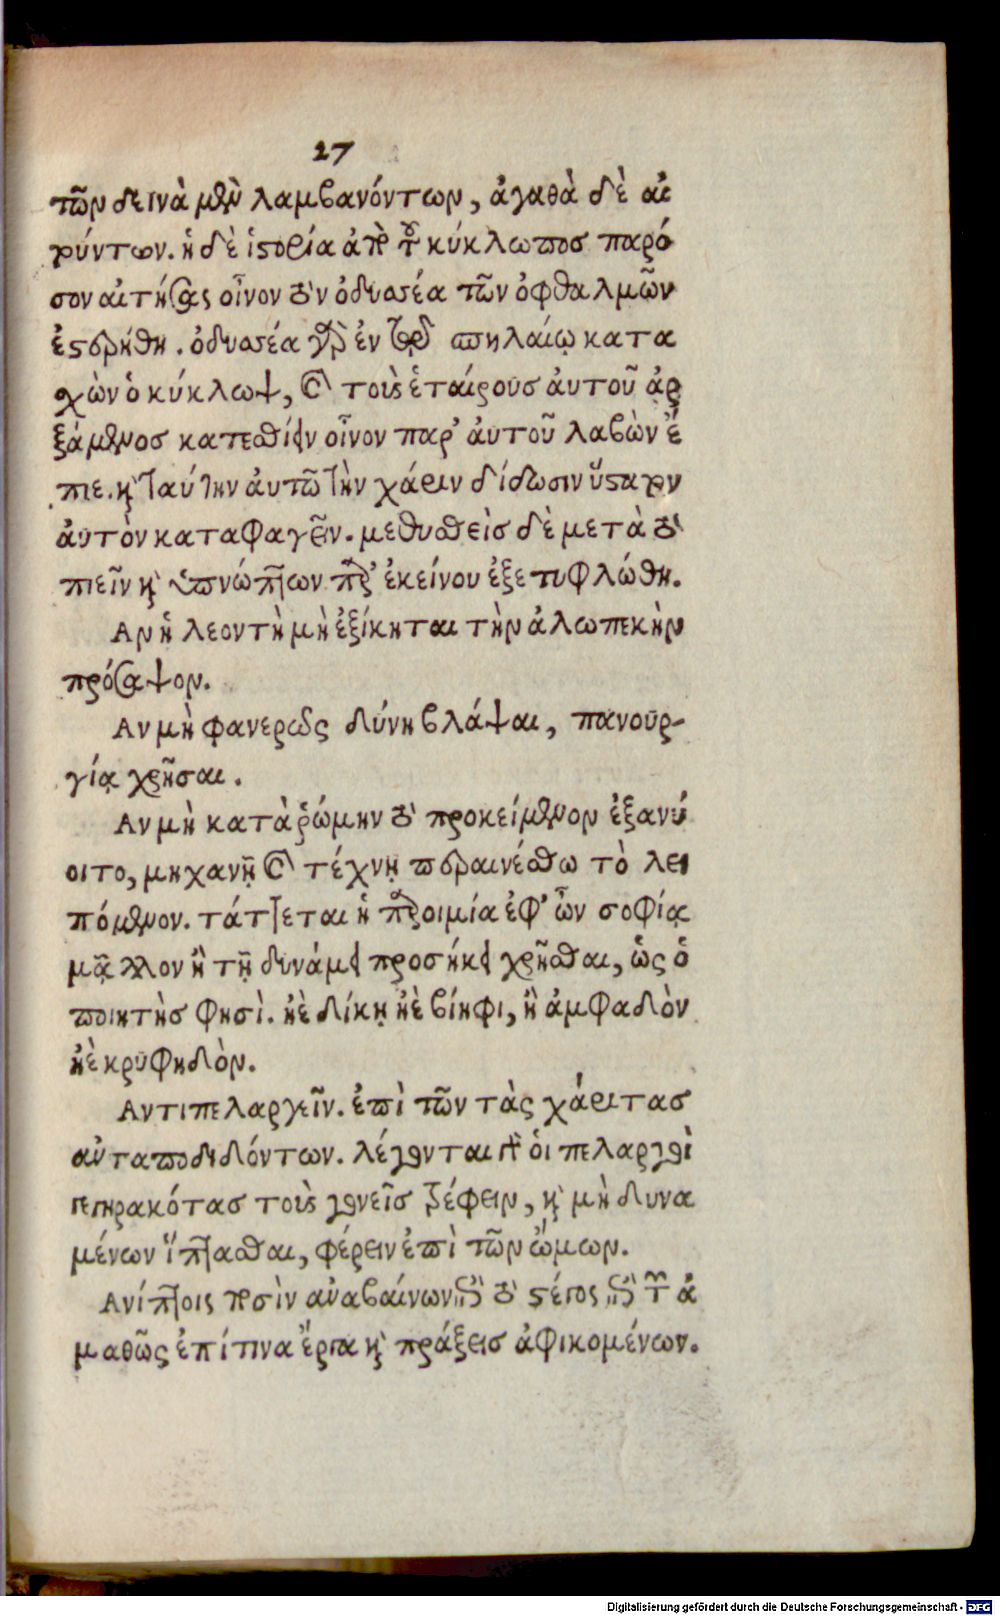 27
τῶν δεινὰ μὲν λαμβανόντων, ἀγαθὰ δὲ αἰ
ρύντων. ἡ δὲ ἱστορία ἀπὸ τοῦ κύκλωπος παρό
σον αἰτήσας οἶνον τὸν ὀδυσέα τῶν ὀφθαλμῶν
ἐστερήθη. ὀδυσέα γὰρ ἐν τῷ σπηλαίῳ κατα
χὼν ὁ κύκλωψ, καὶ τοὺς ἑταίρους ἀυτοῦ ἀρ
ξάμενος κατεσθίειν οἶνον παρ' ἀυτοῦ λαβὼν ἔ
πιε. καὶ ταύτην ἀυτῶ τὴν χάριν δίδωσιν ὕσταρον
ἀυτὸν καταφαγεῖν. μεθυσθεὶς δὲ μετὰ τὸ
πιεῖν καὶ ὑπνώττων παρ' ἐκείνου ἐξετυφλώθη.
Αν ἡ λεοντὴ μὴ ἐξίκηται τὴν ἀλωπεκὴν
πρόσαψον.
Αν μὴ φανερῶς δύνη βλάψαι, πανουρ-
γίᾳ χρῆσαι.
Αν μὴ κατὰ ῥώμην τὸ προκείμενον ἐξανύ
οιτο, μηχανῇ καὶ τέχνῃ περαινέσθω τὸ λει
πόμενον. τάττεται ἡ παροιμία ἐφ' ὧν σοφίᾳ
μᾶλλον ἢ τῇ δυνάμει προσήκει χρῆσθαι, ὡς ὁ
ποιητὴς φησὶ. ἠὲ δίκῃ ἠὲ βίηφι, ἢ ἀμφαδὸν
ἠὲ κρυφηδὸν.
Αντιπελαργεῖν. ἐπὶ τῶν τὰς χάριτας
ἀνταποδιδόντων. λέγονται γὰρ ὁι πελαργοὶ
γεγηρακότας τοὺς γονεῖς τρέφειν, καὶ μὴ δυνα
μένων ἵπτασθαι, φέρειν ἐπὶ τῶν ὤμων.
Ανίπτοις ποσὶν ἀναβαίνων ἐπὶ τὸ στέγος, ἐπὶ τῶν ἀ
μαθῶς ἐπί τινα ἔργα καὶ πράξεις ἀφικομένων.
Digitalisierung gefördert durch die Deutsche Forschungsgemeinschaft - DFG